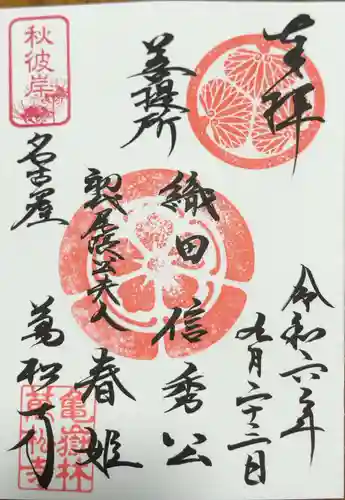 奉拝
令和六年
九月二十二日
菩提所
織田信秀公
初代尾張公夫人
春姫
秋彼岸
名古屋
萬松寺
亀嶽林
萬松寺